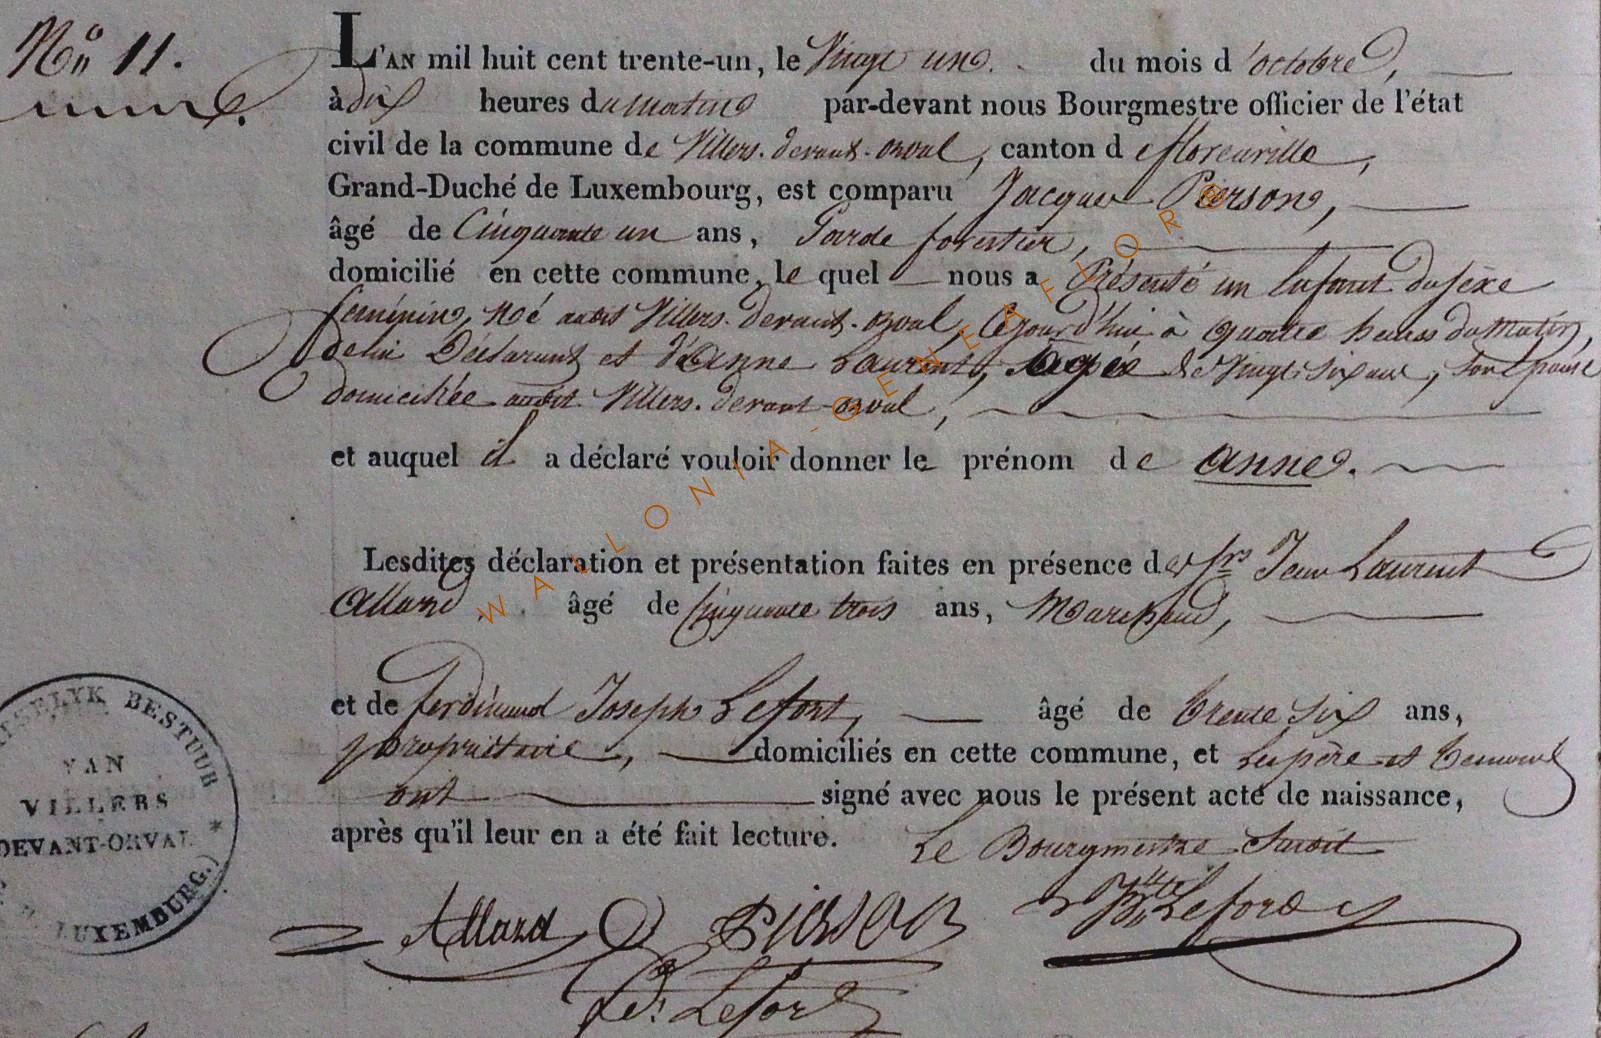 N.º 11.
L'AN mil huit cent trente-un, le Vingt un. du mois d'octobre,
à dix heures du matin par-devant nous Bourgmestre officier de l'état
civil de la commune de Villers-devant-orval, canton de florenville,
Grand-Duché de Luxembourg, est comparu Jacques Pierson,
âgé de Cinquante un ans, Garde forestier,
domicilié en cette commune, le quel nous a Présenté un Enfant du sèxe
feminin, né audit Villers-devant-orval, Cejourd'hui à quatre heures du Matin,
de lui Déclarant et d'anne Laurent, agée de Vingt-six ans, son Epouse
domiciliée audit Villers-devant-orval,
et auquel il a déclaré vouloir donner le prénom de anne.
Lesdites déclaration et présentation faites en présence des srs Jean Laurent
Allard âgé de Cinquante trois ans, Marchand,
et de ferdinand Joseph Lefort, âgé de trente six ans,
propriétaire, domiciliés en cette commune, et Le père et temoins
ont signé avec nous le présent acte de naissance,
après qu'il leur en a été fait lecture. Le Bourgmestre Susdit
Allard Pierson Lefort
Lefort
BESTUUR
VAN
VILLERS
DEVANT-ORVAL *
LUXEMBURG.)
WALLONIA-GENEAFLORE